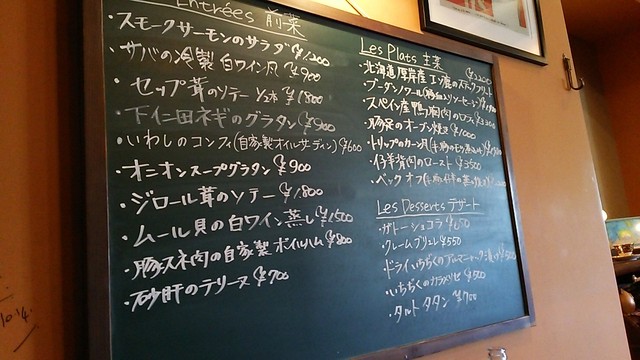 Entrées 前菜
・スモークサーモンのサラダ ¥1,200
・サバの冷製 白ワイン風 ¥900
・セップ茸のソテー ¥1800
・下仁田ネギのグラタン ¥900
・いわしのコンフィ(自家製オイルサーディン) ¥600
・オニオンスープグラタン ¥900
・ジロール茸のソテー ¥1,800
・ムール貝の白ワイン蒸し ¥1500
・豚スネ肉の自家製ボイルハム ¥800
・砂肝のテリーヌ ¥700
Les Plats 主菜
・北海道厚岸産エゾ鹿のステークフリット ¥3200
・ブーダンノワール
・スペイン産鴨胸肉のロティ
・豚足のオーブン焼き ¥1000
・トリップのカーン風
・仔羊背肉のロースト ¥3500
・ベックオフ
Les Desserts デザート
・ガトーショコラ ¥650
・クレームブリュレ ¥550
・ドライいちぢくのアルマニャック漬け ¥500
・いちぢくのカラメリゼ ¥500
・タルトタタン ¥700